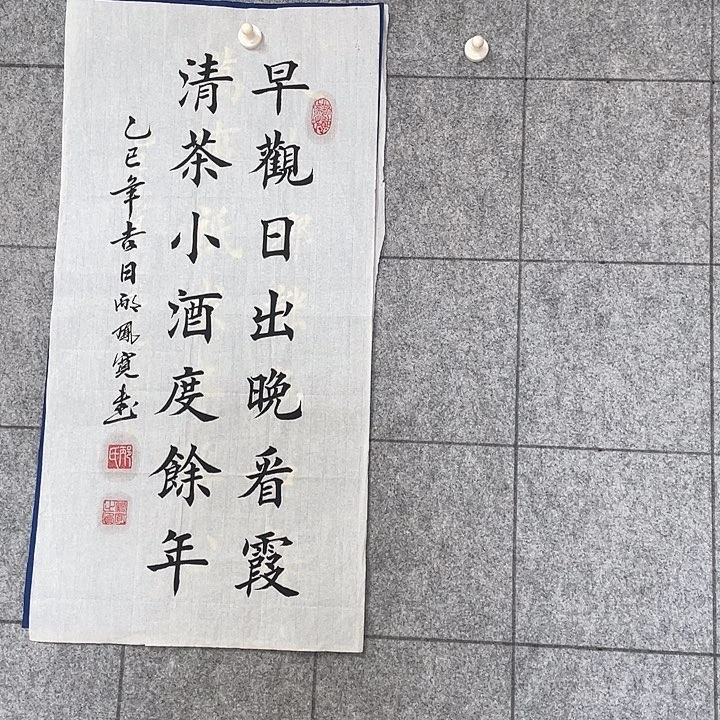 早觀日出晚看霞
清茶小酒度餘年
乙巳年吉日邴鳳寬書